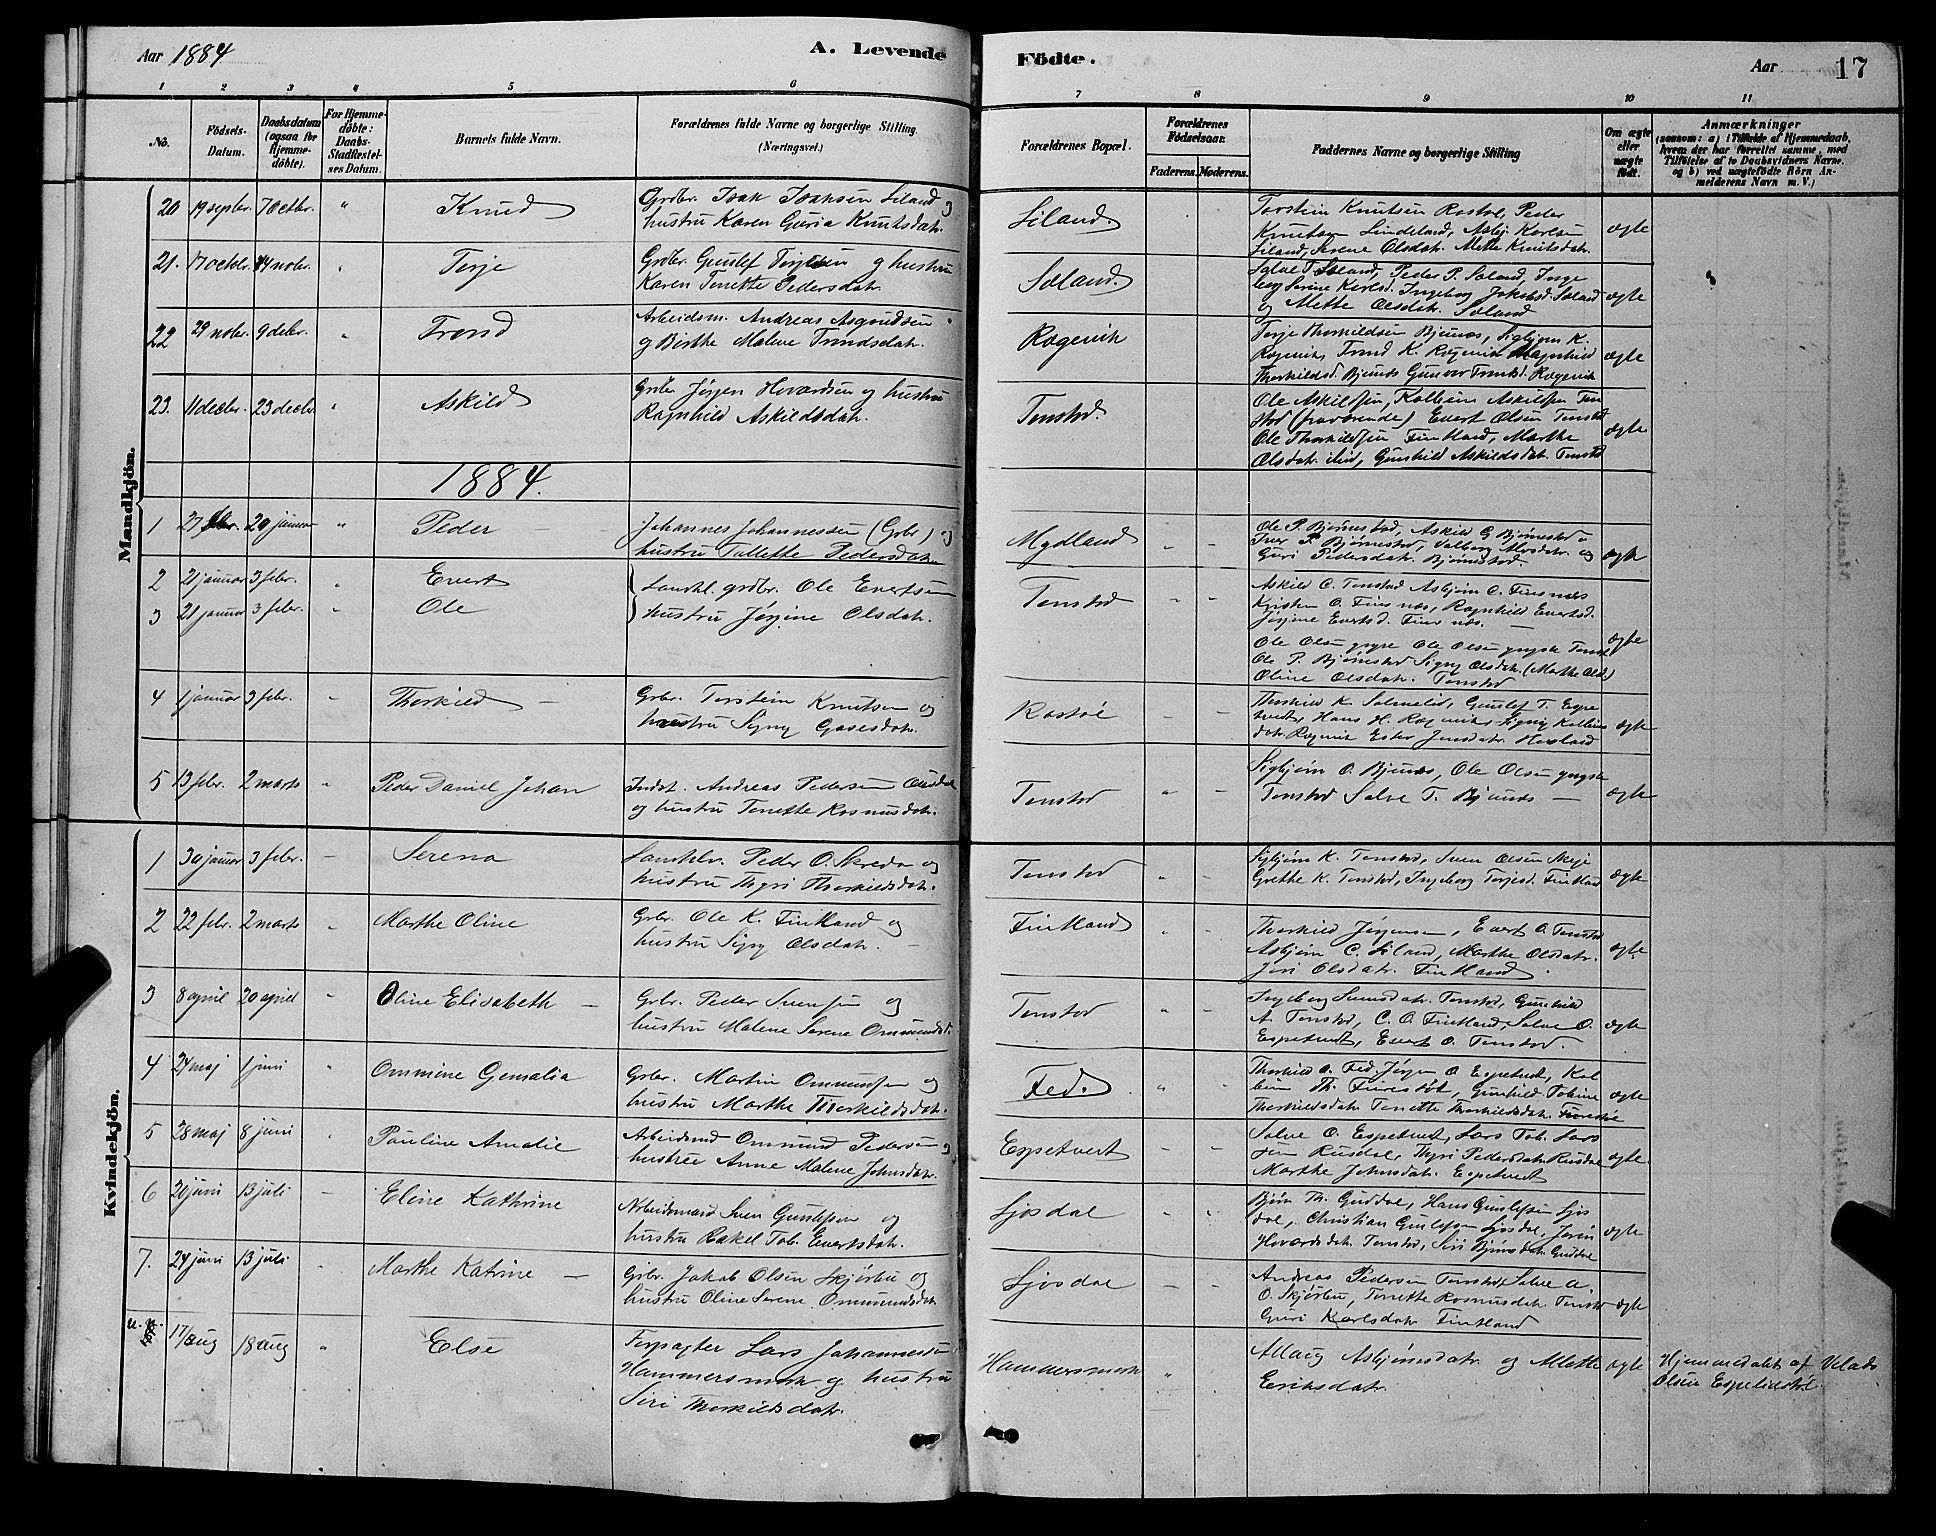 Aar 1884
A. Levende
Födte.
Aar 17
1 2 3 4 5 6 7 8 9 10 11
No.
Födsels-Datum.
Daabsdatum (ogsaa for Hjemmedöbte).
For Hjemmedöbte: Daabs-Stadfæstelses Datum.
Barnets fulde Navn.
Forældrenes fulde Navne og borgerlige Stilling.
(Næringsvei.)
Forældrenes Bopæl.
Forældrenes Födselsaar.
Faderens. Moderens.
Faddernes Navne og borgerlige Stilling
Om ægte eller uægte födt.
Anmærkninger
(saasom: a) i Tilfælde af Hjemmedaab, hvem der har forrettet samme, med Tilföielse af to Daabsvidners Navne, og b) ved uægtefödte Börn Anmelderens Navn m. V.)
Mandkjön.
20 19 septbr. 7 octbr. " Knud
Grdbr. Isak Isaksen Liland og
hustru Karen Guria Knutsdatr.
Liland.
Torstein Knutsen Rostøl, Peder
Knutsen Lindeland, Asbj. Karlsen
Liland, Serene Olsdatr. Mette Knutsdatr.
ægte
21. 17 octbr. 4 nobr. " Terje
Grdbr. Gunlef Terjesen og hustru
Karen Tonette Pedersdatr.
Soland.
Salve T. Soland, Peder P. Soland, Inge
borg Serine Karlsd. Ingeborg Jakobsd. Soland
og Mette Olsdatr. Soland
ægte
22 29 nobr. 9 debr. " Trond
Arbeidsm. Andreas Asgoudsen
og Berthe Malene Trondsdatr.
Røgevik
Terje Thorkildsen Bjunes, Sigbjørn K.
Røgevik, Trond K. Røgevik Magnhild
Thorkildsd. Bjunes Gunvor Trondsd. Røgevik
ægte
23. 11 decbr. 23 decbr. " Askild
Grdbr. Jørgen Hovardsen og hustru
Ragnhild Askildsdatr.
Tonstad.
Ole Askildsen, Kolbein Askildsen Ton
stad (fraværende) Evert Olsen Tonstad
Ole Thorkildsen Fintland, Marthe
Olsdatr. ibid, Gunhild Askildsdatr. Tonstad
ægte
1884.
1 27 debr. 20 januar " Peder
Johannes Johannessen (Grbr) og
hustru Tallette Pedersdatr.
Mydland
Ole P. Bjørnestad, Askild G Bjørnestad
Iver P. Bjørnestad, Valborg Alvsdatr. og
Guri Pedersdatr. Bjørnestad.
ægte
2 21 januar 3 febr. " Evert
3 21 januar 3 febr. " Ole
Lensm. grdbr. Ole Evertsen
hustru Jørgine Olsdatr.
Tonstad
Askild O. Tonstad Asbjørn O. Finsnæs
Kristen O. Finsnæs, Ragnhild Evertsd.
Jørgine Evertsd. Finsnæs.
Ole Olsen yngre Ole Olsen yngste Tonst.
Ole P. Bjørnestad Signy Olsdatr. (Marthe Olsd.)
Oline Olsdatr. Tonstad
ægte
4 1 januar 3 febr. " Thorkild
Grbr. Torstein Knutsen og
hustru Signy Gaselsdatr.
Rostøl
Thorkild K. Salmelid, Gunlef T. Espe
tvedt, Hans H. Røgevik, Signy Kolbens
datr. Røgevik Ester Jensdatr. Hovland
ægte
5 13 febr. 2 marts " Peder Daniel Johan
Indst. Andreas Pedersen Ousdal
og hustru Tonette Rasmusdatr.
Tonstad
Sigbjørn O. Bjunes, Ole Olsen yngste
Tonstad Salve T. Bjunes
ægte
Kvindekjön.
1 30 januar 3 febr. Serena
Landhl. Peder O. Skreda og
hustru Thyri Thorkildsdatr.
Tonstad
Sigbjørn K. Tonstad, Sven Olsen Skeje
Grethe K. Tonstad, Ingeborg Terjesd. Fintland
ægte
2 22 febr. 2 marts " Marthe Oline
Grbr. Ole K. Fintland og
hustru Signy Olsdatr.
Fintland
Thorkild Jørgensen, Evert O. Tonstad
Asbjørn C. Liland, Marthe Olsdatr.
Jori Olsdatr. Fintland.
ægte
3 8 april 20 april " Oline Elisabeth
Grbr. Peder Svensen og
hustru Malene Serene Ommundsd.
Tonstad
Ingeborg Svensdatr. Tonstad, Gunhild
A. Tonstad, C. O. Fintland, Salve O.
Espetvedt, Evert O. Tonstad.
ægte
4 24 maj 1 juni " Ommine Gemalia
Grbr. Martin Ommundsen og
hustru Marthe Thorkildsdatr.
Fed.
Thorkild O. Fed Jørgen O Espetvedt, Kol
bein Th. Finestøl, Gunhild Tobine
Thorkildsdatr. Tonette Thorkildsdatr. Finestøl
ægte
5 28 maj 8 juni " Pauline Amalie
Arbeidsmd Ommund Pedersen og
hustru Anne Malene Johnsdatr.
Espetvedt
Salve O. Espetvedt, Lars Tob. Lars
sen Rusdal, Thyri Pedersdatr. Rusdal
Marthe Johnsdatr. Espetvedt
ægte.
6 20 juni 13 juli Eline Kathrine
Arbeidsmand Sven Gunlefsen og
hustru Rakel Tob. Evertsdatr.
Ljosdal
Bjørn Th. Guddal, Hans Gunlefsen Ljos
dal, Christian Gunlefsen Ljosdal, Joren
Hovardsdatr. Tonstad, Siri Bjørnsdatr. Guddal
ægte
7. 24 juni 13 juli " Marthe Katrine
Grbr. Jakob Olsen Skjørbu og
hustru Oline Serene Ommundsdatr.
Ljosdal
Andreas Pedersen Tonstad, Salve O.
O. Skjørbu, Tonette Rasmusdatr. Tonstad
Guri Karlsdatr. Fintland
ægte
17/aug 18 aug " Else
Forpagter Lars Johannessen
Hammersmark og hustru
Siri Thorkildsdatr.
Hammersmark
Allaug Asbjørnsdatr. og Mette
Eriksdatr.
ægte
Hjemmedøbt af Velads
Olsen Espelidstøl.